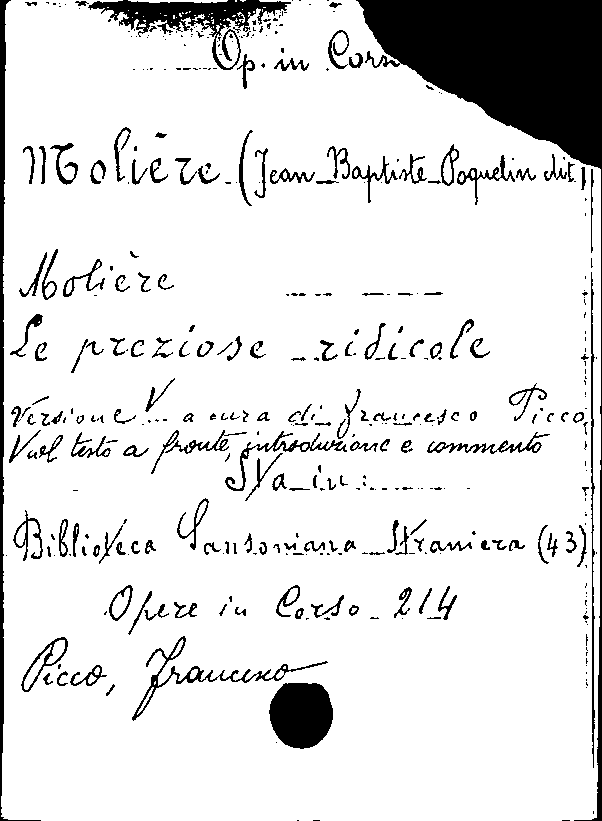 Op. in Cors
Molière (Jean-Baptiste-Poquelin dit)
Molière
Le preziose ridicole
Versione V... a cura di Francesco Picco
V col testo a fronte, introduzione e commento
Sta in:
Biblioteca Sansoniana Straniera (43)
Opere in Corso 214
Picco, Francesco